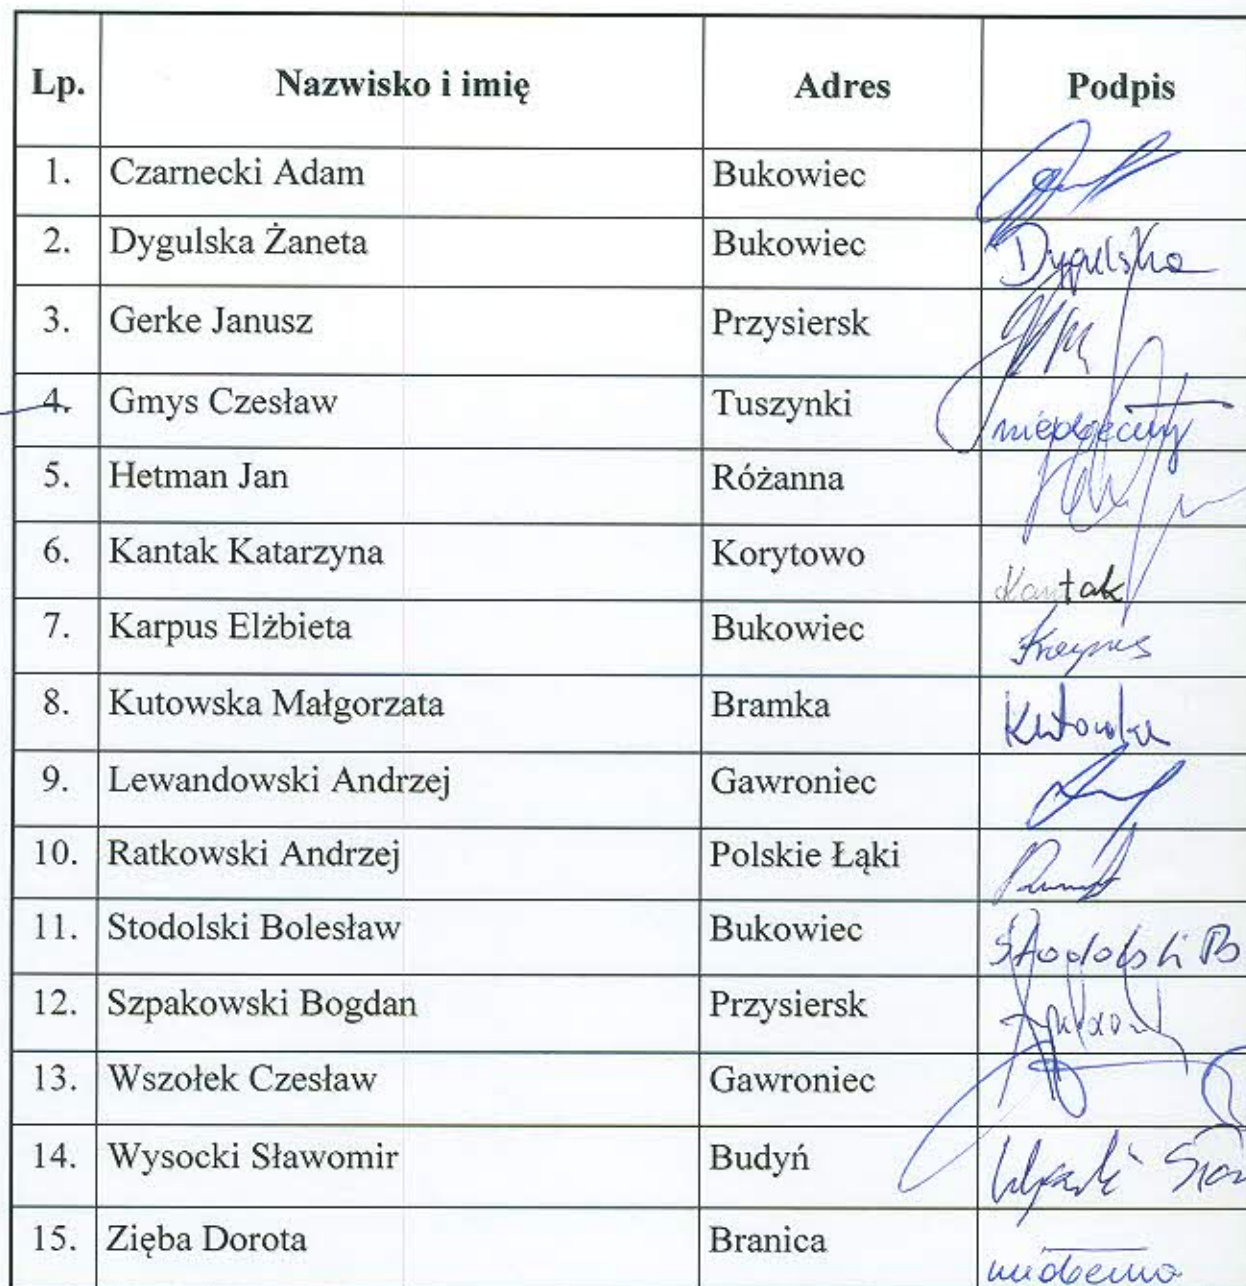 Lp. Nazwisko i imię Adres Podpis
1. Czarnecki Adam Bukowiec
2. Dygulska Żaneta Bukowiec Dygulska
3. Gerke Janusz Przysiersk
4. Gmys Czesław Tuszynki nieobecny
5. Hetman Jan Różanna
6. Kantak Katarzyna Korytowo Kantak
7. Karpus Elżbieta Bukowiec Karpus
8. Kutowska Małgorzata Bramka Kutowska
9. Lewandowski Andrzej Gawroniec
10. Ratkowski Andrzej Polskie Łąki
11. Stodolski Bolesław Bukowiec Stodolski B
12. Szpakowski Bogdan Przysiersk
13. Wszołek Czesław Gawroniec
14. Wysocki Sławomir Budyń
15. Zięba Dorota Branica nieobecna